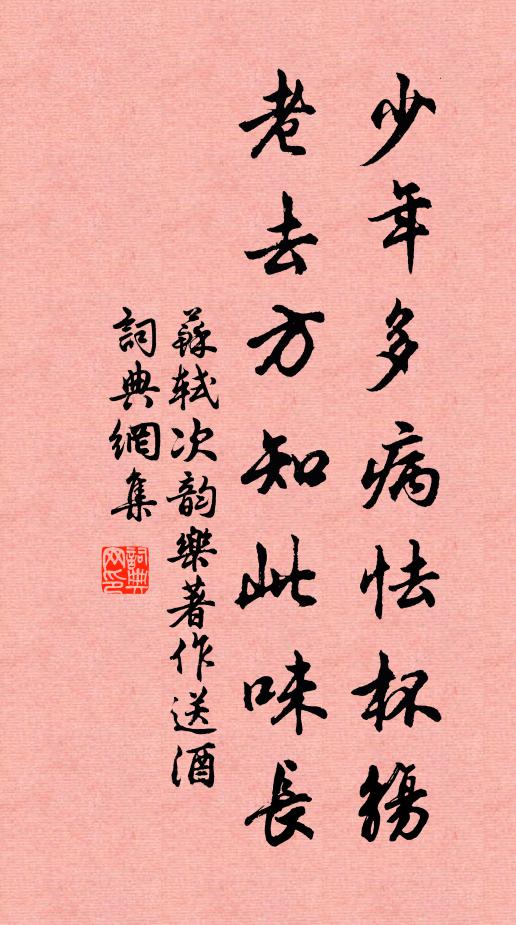 少年多病怯杯觴
老去方知此味長
蘇軾次韵樂著作送酒
詞典網集
詞典
网印